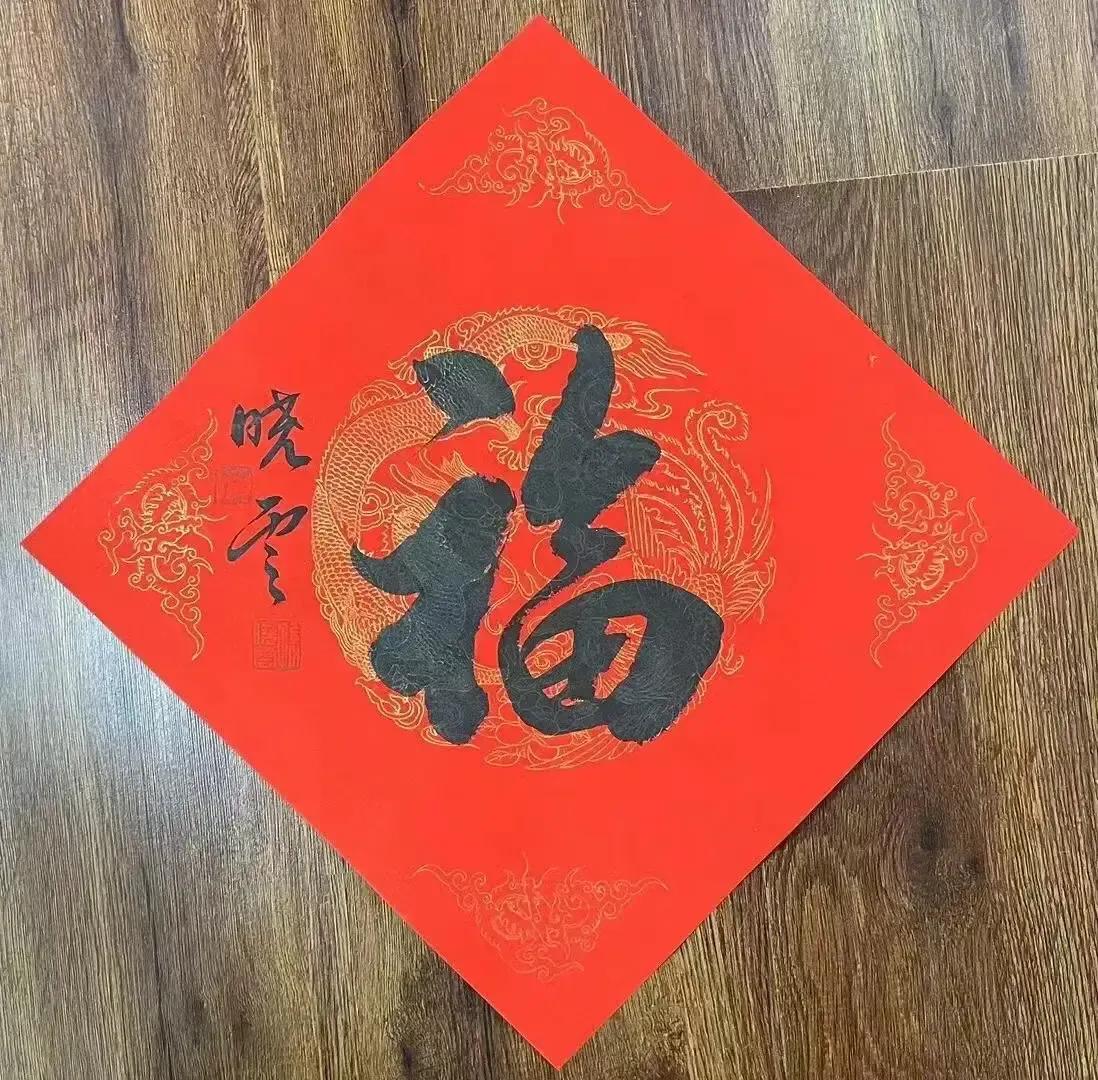 福
晓云